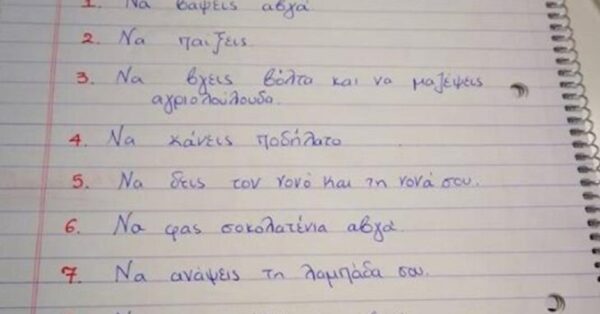 1. Να βάψεις αυγά
2. Να παίξεις
3. Να βγεις βόλτα και να μαζέψεις
αγριολούλουδα.
4. Να κάνεις ποδήλατο
5. Να δεις τον νονό και τη νονά σου.
6. Να φας σοκολατένια αυγά.
7. Να ανάψεις τη λαμπάδα σου.